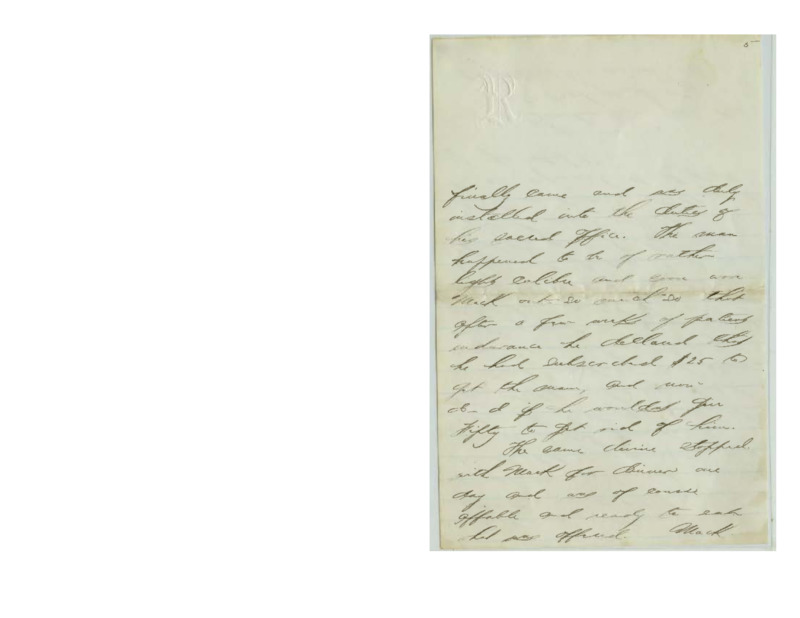 5
R
finally came and was duly
installed into the duties of
his sacred office. The man
happened to be of rather
light calibre and soon wore
Mack out so much so that
after a few weeks of patient
endurance he declared that
he had subscribed $25 to
get the man, and
d—d if he wouldn't give
Fifty to get rid of him.
The same divine stopped
with Mack for dinner one
day and was of course
affable and ready to eat
what was offered. Mack